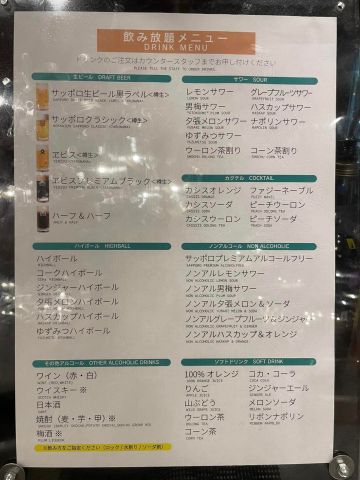 飲み放題メニュー
DRINK MENU
ドリンクのご注文はカウンタースタッフまでお申し付けください
PLEASE TELL THE STAFF TO ORDER DRINKS.
生ビール DRAFT BEER
サッポロ生ビール黒ラベル<樽生>
サッポロクラシック<樽生>
ヱビス<樽生>
ヱビスプレミアムブラック<樽生>
ハーフ＆ハーフ
HALF & HALF
サワー SOUR
レモンサワー グレープフルーツサワー
LEMON SOUR GRAPEFRUIT SOUR
男梅サワー ハスカップサワー
HASKAP SOUR
夕張メロンサワー ナポリンサワー
YUBARI MELON SOUR NAPOLIN SOUR
ゆずみつサワー
ウーロン茶割り コーン茶割り
カクテル COCKTAIL
カシスオレンジ ファジーネーブル
CASSIS ORANGE FUZZY NAVEL
カシスソーダ ピーチウーロン
CASSIS SODA PEACH OOLONG TEA
カシスウーロン ピーチソーダ
CASSIS OOLONG TEA PEACH SODA
ハイボール HIGHBALL
ハイボール
HIGHBALL
コークハイボール
ジンジャーハイボール
夕張メロンハイボール
ハスカップハイボール
ゆずみつハイボール
ノンアルコール NON ALCOHOLIC
サッポロプレミアムアルコールフリー
SAPPORO PREMIUM ALCOHOLFREE
ノンアルレモンサワー
NON ALCOHOLIC LEMON SOUR
ノンアル男梅サワー
ノンアル夕張メロン＆ソーダ
ノンアルグレープフルーツ＆ジンジャー
ノンアルハスカップ＆オレンジ
その他アルコール OTHER ALCOHOLIC DRINKS
ワイン（赤・白）
ウイスキー ※
日本酒
焼酎（麦・芋・甲）※
梅酒 ※
PLUM LIQUEUR
※飲み方をご指定ください（ロック / 水割り / ソーダ割）
ソフトドリンク SOFT DRINK
100% オレンジ コカ・コーラ
100% ORANGE JUICE COCA COLA
りんご ジンジャーエール
APPLE JUICE GINGER ALE
山ぶどう メロンソーダ
WILD GRAPE JUICE MELON SODA
ウーロン茶 リボンナポリン
OOLONG TEA RIBBON NAPOLIN
コーン茶
CORN TEA